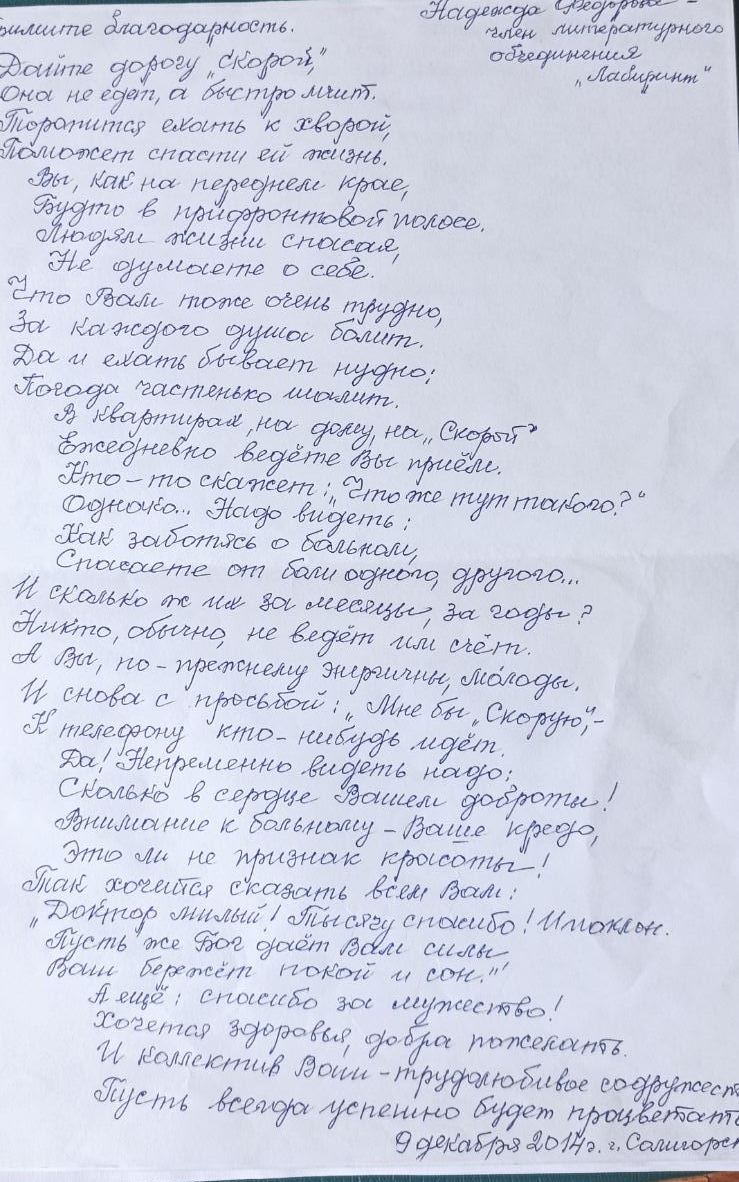 римите благодарность.
Надежда Федоровна –
член литературного
объединения
„Лабиринт“
Дайте дорогу „Скорой,“
Она не едет, а быстро мчит.
Торопится ехать к хворой,
Поможет спасти ей жизнь.
Вы, как на переднем крае,
Будто в прифронтовой полосе.
Людям жизни спасая,
Не думаете о себе.
Что Вам тоже очень трудно,
За каждого душа болит.
Да и ехать бывает нудно:
Погода частенько шалит.
В квартирах, на дому, на „Скорой“
Ежедневно ведёте Вы приём.
Кто-то скажет: „Что же тут такого?“
Однако... Надо видеть:
Как заботясь о больном,
Спасаете от боли одного, другого...
И сколько ж их за месяцы, за годы?
Никто, обычно, не ведёт им счёт.
А Вы, по-прежнему энергичны, мóлоды.
И снова с просьбой: „Мне бы „Скорую“, –
К телефону кто-нибудь идёт.
Да! Непременно видеть надо:
Сколько в сердце Вашем доброты!
Внимание к больному – Ваше кредо,
Это ли не признак красоты!
Так хочется сказать всем Вам:
„Доктор милый! Тысячу спасибо! И поклон.
Пусть же Бог даёт Вам силы
Ваш бережёт покой и сон.“
А ещё: спасибо за мужество!
Хочется здоровья, добра пожелать.
И коллектив Ваш – трудолюбивое содружест
Пусть всегда успешно будет процветать
9 декабря 2014г. г. Солигорск